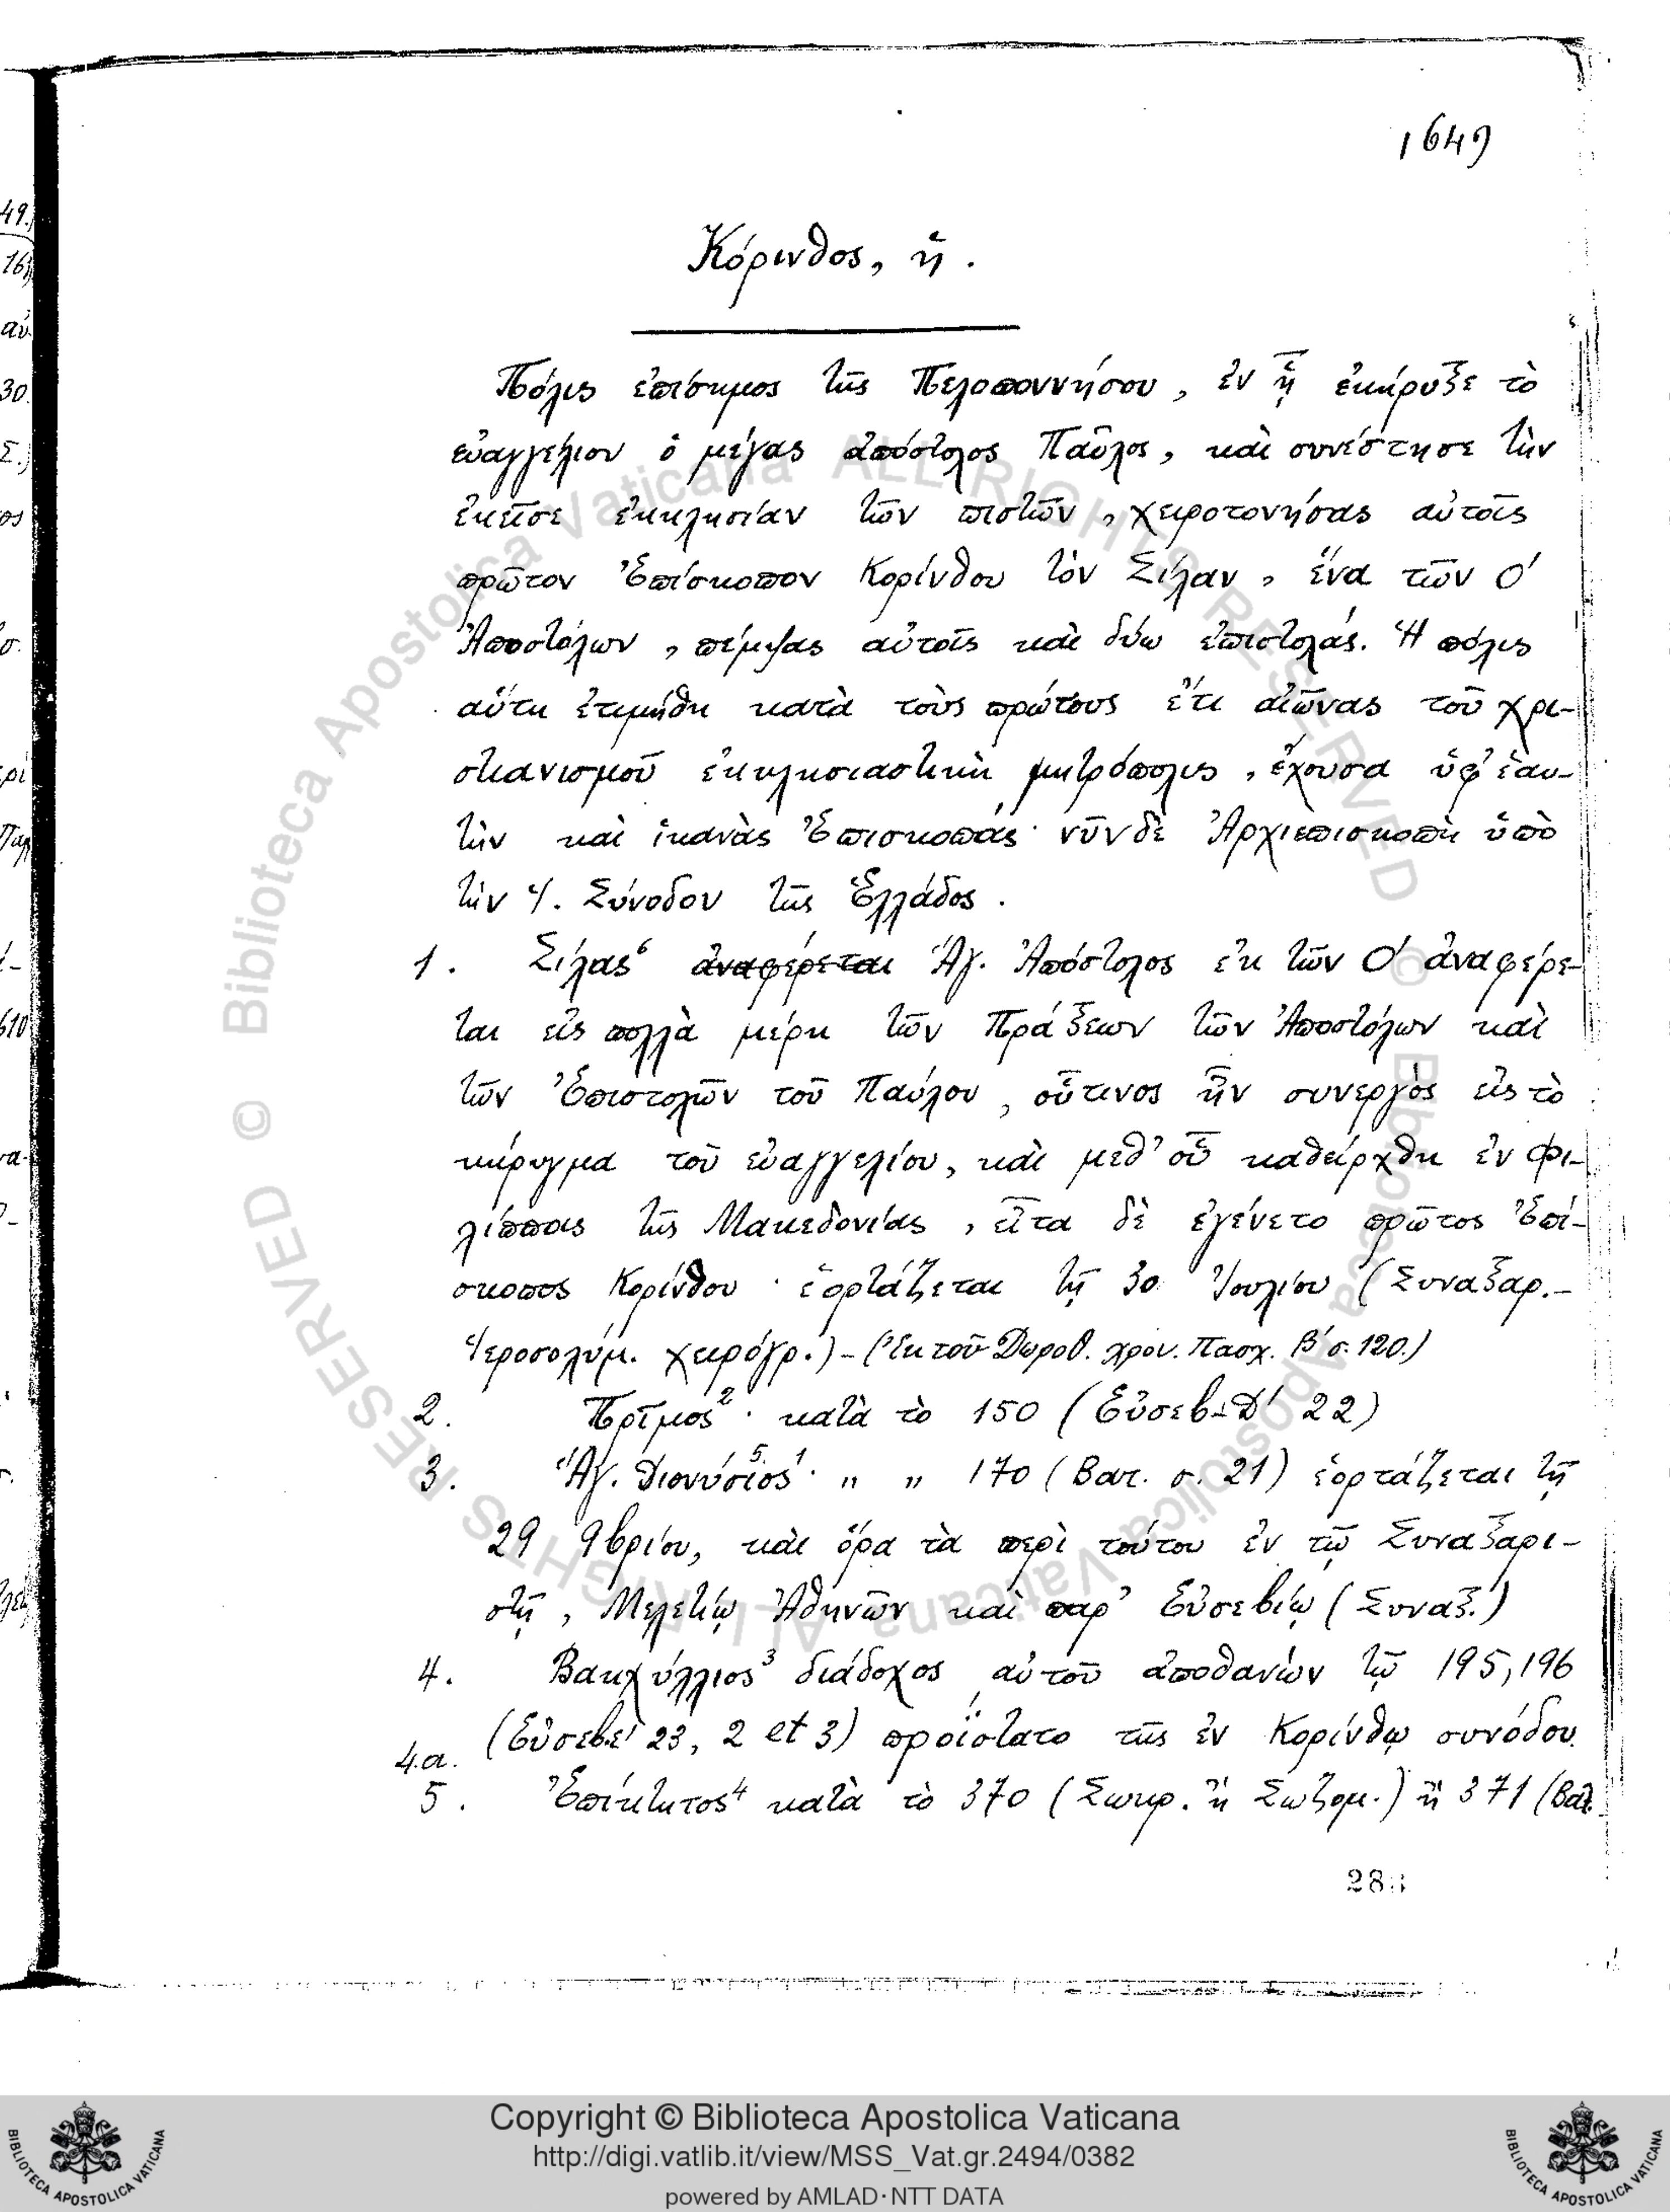 1649
Κόρινθος, ἡ.
Πόλις ἐπίσημος τῆς Πελοποννήσου, ἐν ᾗ ἐκήρυξε τὸ
εὐαγγέλιον ὁ μέγας ἀπόστολος Παῦλος, καὶ συνέστησε τὴν
ἐκεῖσε ἐκκλησίαν τῶν πιστῶν, χειροτονήσας αὐτοῖς
πρῶτον Ἐπίσκοπον Κορίνθου τὸν Σίλαν, ἕνα τῶν Ο′
Ἀποστόλων, πέμψας αὐτοῖς καὶ δύω ἐπιστολάς. Ἡ πόλις
αὕτη ἐτιμήθη κατὰ τοὺς πρώτους ἔτι αἰῶνας τοῦ χρι-
στιανισμοῦ ἐκκλησιαστικὴ μητρόπολις, ἔχουσα ὑφ' ἑαυ-
τὴν καὶ ἱκανὰς Ἐπισκοπάς· νῦν δὲ Ἀρχιεπισκοπὴ ὑπὸ
τὴν Ἱ. Σύνοδον τῆς Ἑλλάδος.
1. Σίλας⁶ ἀναφέρεται Ἅγ. Ἀπόστολος ἐκ τῶν Ο′ ἀναφέρε-
ται εἰς πολλὰ μέρη τῶν Πράξεων τῶν Ἀποστόλων καὶ
τῶν Ἐπιστολῶν τοῦ Παύλου, οὗτινος ἦν συνεργὸς εἰς τὸ
κήρυγμα τοῦ εὐαγγελίου, καὶ μεθ' οὗ καθείρχθη ἐν Φι-
λίπποις τῆς Μακεδονίας, εἶτα δὲ ἐγένετο πρῶτος Ἐπί-
σκοπος Κορίνθου· ἑορτάζεται τῇ 30 Ἰουλίου (Συναξαρ.-
Ἱεροσολύμ. χειρόγρ.) - (Ἐκ τοῦ Δωροθ. χρον. Πασχ. Β′ σ. 120.)
2. Πρῖμος² · κατὰ τὸ 150 (Εὐσεβ. Δ′ 22)
3. Ἅγ. Διονύσιος⁵ ¹· „ „ 170 (Βατ. σ. 21) ἑορτάζεται τῇ
29 9βρίου, καὶ ὅρα τὰ περὶ τούτου ἐν τῷ Συναξαρι-
στῇ, Μελετίῳ Ἀθηνῶν καὶ παρ' Εὐσεβίῳ (Συναξ.)
4. Βακχύλλιος³ διάδοχος αὐτοῦ ἀποθανών τῷ 195, 196
(Εὐσεβ. ε′ 23, 2 et 3) προΐστατο τῆς ἐν Κορίνθῳ συνόδου.
4.α.
5. Ἐπίκτητος⁴ κατὰ τὸ 370 (Σωκρ. ἢ Σωζομ.) ἢ 371 (Βατ.
Copyright © Biblioteca Apostolica Vaticana
http://digi.vatlib.it/view/MSS_Vat.gr.2494/0382
powered by AMLAD·NTT DATA
BIBLIOTECA APOSTOLICA VATICANA
BIBLIOTECA APOSTOLICA VATICANA
© Biblioteca Apostolica Vaticana ALL RIGHTS RESERVED
© Biblioteca Apostolica Vaticana ALL RIGHTS RESERVED